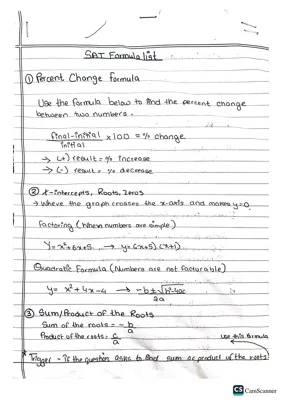 SAT Formula list
① Percent Change Formula
Use the formula below to find the percent change
between two numbers.
final-initial / initial x100 = % change
→ (+) result = % increase
→ (-) result = % decrease
② X-intercepts, Roots, Zeros
→ Where the graph crosses the x-axis and makes y=0.
Factoring (When numbers are simple)
y = x²+6x+5 → y=(x+5)(x+1)
Quadratic Formula (Numbers are not facturable)
y = x²+4x-4 → -b±√b²-4ac / 2a
③ Sum/Product of the Roots
Sum of the roots = -b/a
Product of the roots = c/a
Use this formula
* Trigger - is the question asks to find sum or product of the roots.
CS CamScanner